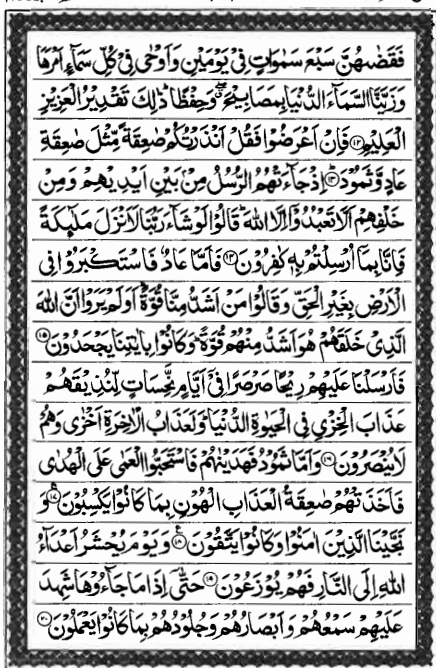 فَقَضٰىهُنَّ سَبْعَ سَمٰوَاتٍ فِيْ يَوْمَيْنِ وَاَوْحٰى فِيْ كُلِّ سَمَآءٍ اَمْرَهَا
وَزَيَّنَّا السَّمَآءَ الدُّنْيَا بِمَصَابِيْحَ ۖ وَحِفْظًا ؕ ذٰلِكَ تَقْدِيْرُ الْعَزِيْزِ
الْعَلِيْمِ ﴿۱۲﴾ فَاِنْ اَعْرَضُوْا فَقُلْ اَنْذَرْتُكُمْ صٰعِقَةً مِّثْلَ صٰعِقَةِ
عَادٍ وَّثَمُوْدَ ﴿۱۳﴾ اِذْ جَآءَتْهُمُ الرُّسُلُ مِنْۢ بَيْنِ اَيْدِيْهِمْ وَمِنْ
خَلْفِهِمْ اَلَّا تَعْبُدُوْٓا اِلَّا اللّٰهَ ؕ قَالُوْا لَوْ شَآءَ رَبُّنَا لَاَنْزَلَ مَلٰٓئِكَةً
فَاِنَّا بِمَآ اُرْسِلْتُمْ بِهٖ كٰفِرُوْنَ ﴿۱۴﴾ فَاَمَّا عَادٌ فَاسْتَكْبَرُوْا فِي
الْاَرْضِ بِغَيْرِ الْحَقِّ وَقَالُوْا مَنْ اَشَدُّ مِنَّا قُوَّةً ؕ اَوَلَمْ يَرَوْا اَنَّ اللّٰهَ
الَّذِيْ خَلَقَهُمْ هُوَ اَشَدُّ مِنْهُمْ قُوَّةً ؕ وَكَانُوْا بِاٰيٰتِنَا يَجْحَدُوْنَ ﴿۱۵﴾
فَاَرْسَلْنَا عَلَيْهِمْ رِيْحًا صَرْصَرًا فِيْٓ اَيَّامٍ نَّحِسَاتٍ لِّنُذِيْقَهُمْ
عَذَابَ الْخِزْيِ فِي الْحَيٰوةِ الدُّنْيَا ؕ وَلَعَذَابُ الْاٰخِرَةِ اَخْزٰى وَهُمْ
لَا يُنْصَرُوْنَ ﴿۱۶﴾ وَاَمَّا ثَمُوْدُ فَهَدَيْنٰهُمْ فَاسْتَحَبُّوا الْعَمٰى عَلَى الْهُدٰى
فَاَخَذَتْهُمْ صٰعِقَةُ الْعَذَابِ الْهُوْنِ بِمَا كَانُوْا يَكْسِبُوْنَ ﴿۱۷﴾ وَ
نَجَّيْنَا الَّذِيْنَ اٰمَنُوْا وَكَانُوْا يَتَّقُوْنَ ﴿۱۸﴾ وَيَوْمَ يُحْشَرُ اَعْدَآءُ
اللّٰهِ اِلَى النَّارِ فَهُمْ يُوْزَعُوْنَ ﴿۱۹﴾ حَتّٰٓى اِذَا مَا جَآءُوْهَا شَهِدَ
عَلَيْهِمْ سَمْعُهُمْ وَاَبْصَارُهُمْ وَجُلُوْدُهُمْ بِمَا كَانُوْا يَعْمَلُوْنَ ﴿۲۰﴾